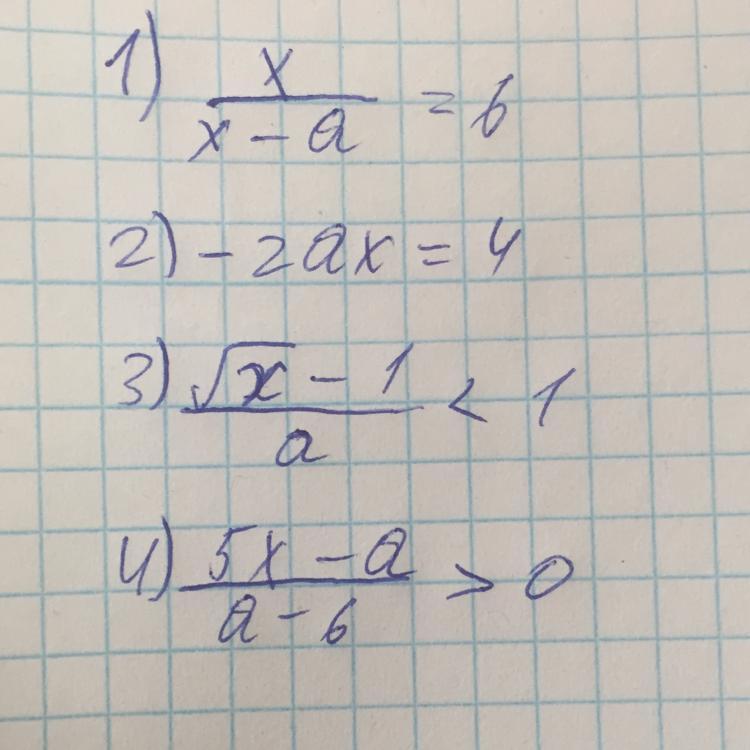 1) x/(x-a) = 6
2) -2ax = 4
3) (√x - 1)/a < 1
4) (5x - a)/(a - 6) > 0